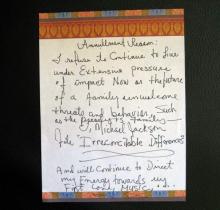 Annullment Reason.
I refuse to Continue to live
under Extensive pressure
of impact Now or the future
of a family an unwelcome
threats and behavior, Such
Michael Jackson
Irreconcilable Differences
And will Continue to Direct
my Energy towards my
First Love, Music